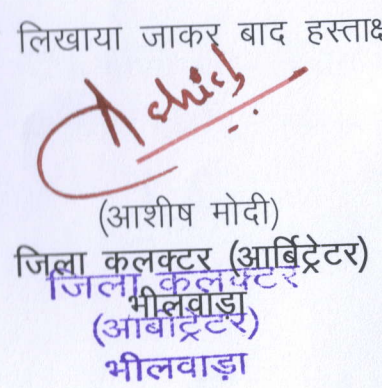 लिखाया जाकर बाद हस्ताक्ष
Ashish
(आशीष मोदी)
जिला कलक्टर (आर्बिट्रेटर)
भीलवाड़ा
जिला कलक्टर
(आर्बीट्रेटर)
भीलवाड़ा